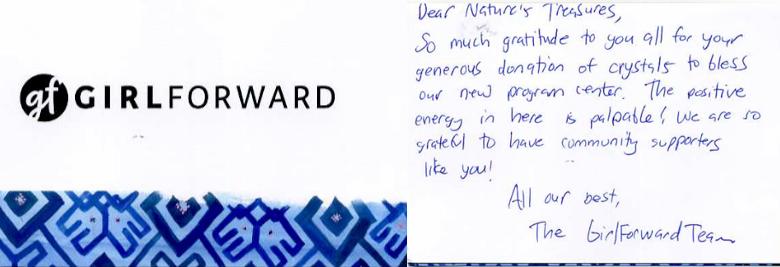 gf GIRLFORWARD
Dear Nature's Treasures,
So much gratitude to you all for your
generous donation of crystals to bless
our new program center. The positive
energy in here is palpable! We are so
grateful to have community supporters
like you!
All our best,
The GirlForward Team